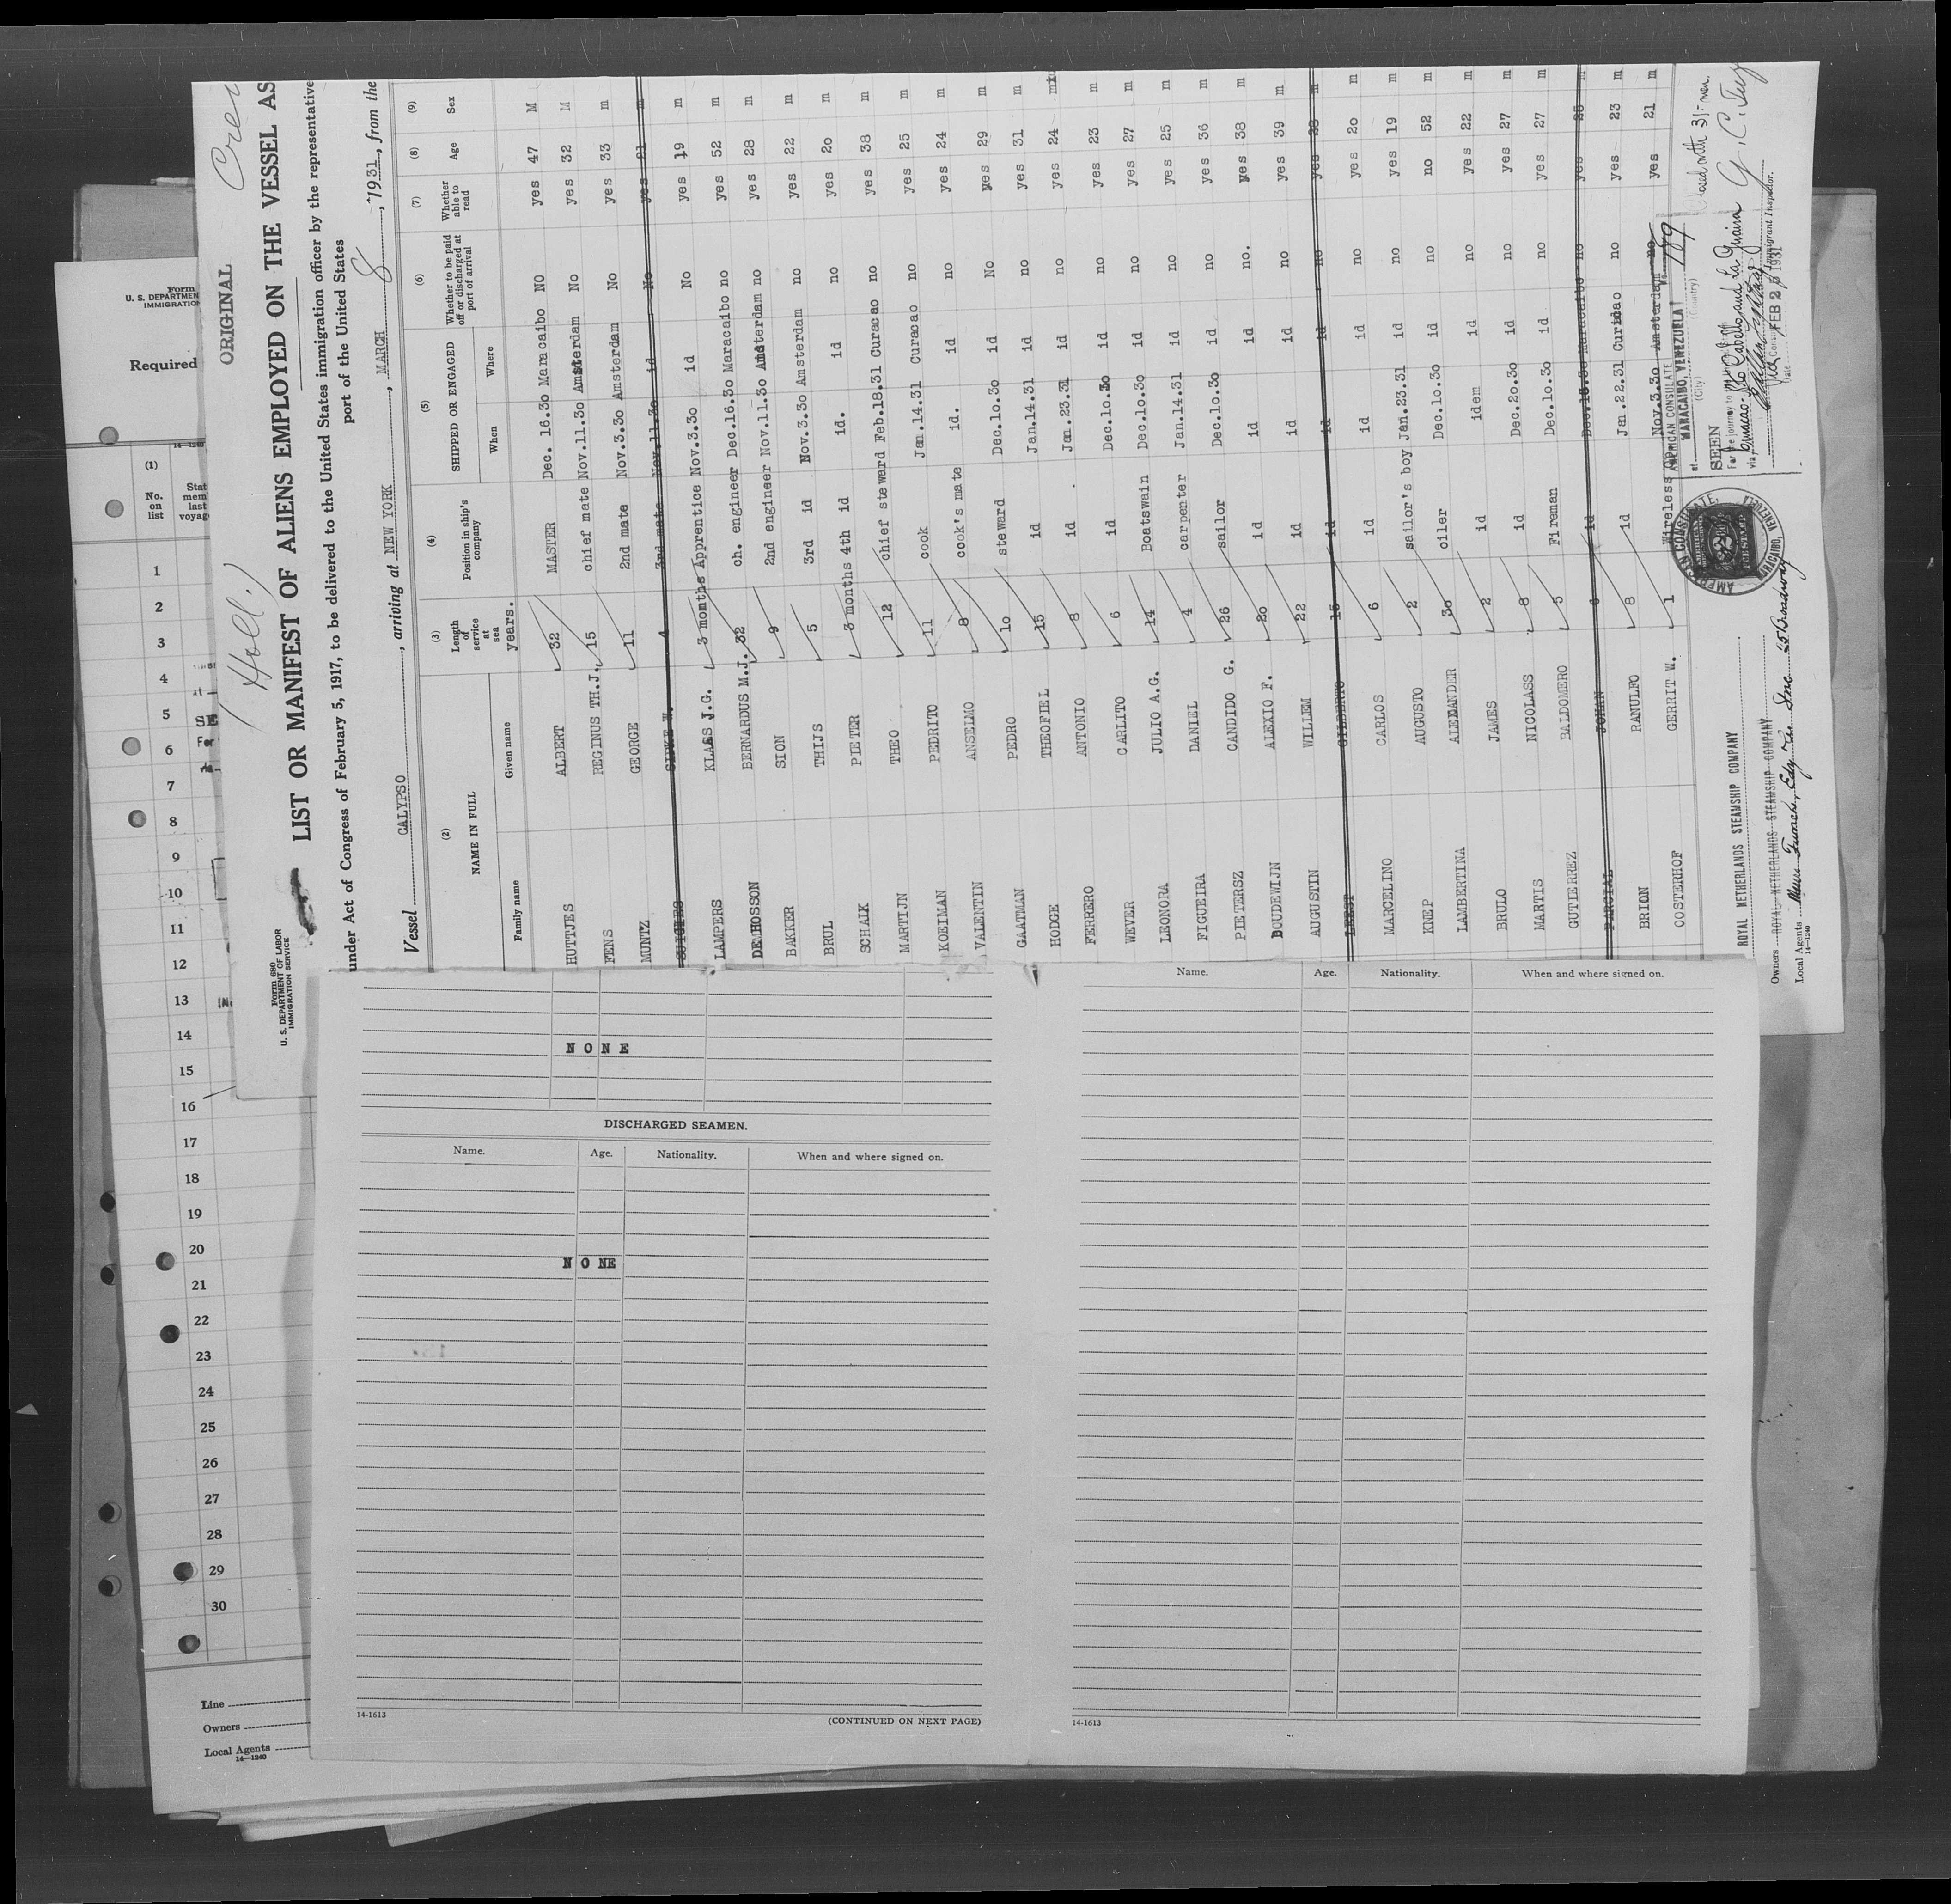 ORIGINAL
Crew
(Holl.)
Form 680
U. S. DEPARTMENT OF LABOR
IMMIGRATION SERVICE
LIST OR MANIFEST OF ALIENS EMPLOYED ON THE VESSEL AS
under Act of Congress of February 5, 1917, to be delivered to the United States immigration officer by the representative
port of the United States
Vessel CALYPSO, arriving at NEW YORK, MARCH 8, 1931, from the
(2) (3) (4) (5) (6) (7) (8) (9)
NAME IN FULL Length of service at sea years. Position in ship's company SHIPPED OR ENGAGED Whether to be paid off or discharged at port of arrival Whether able to read Age Sex
Family name Given name When Where
HUTTJES ALBERT 32 MASTER Dec. 16.30 Maracaibo No yes 47 M
FENS REGINUS TH.J. 15 chief mate Nov.11.30 Amsterdam No yes 32 M
MUNTZ GEORGE 11 2nd mate Nov.3.30 Amsterdam No yes 33 m
4 3rd mate Nov.11.30 id No yes 21 m
LAMPERS KLAAS J.G. 3 months Apprentice Nov.3.30 id No yes 19 m
BERNARDUS M.J. 32 ch. engineer Dec.16.30 Maracaibo no yes 52 m
BAKKER SION 9 2nd engineer Nov.11.30 Amsterdam no yes 28 m
BRUL THIJS 5 3rd id Nov.3.30 Amsterdam no yes 22 m
SCHAIK PIETER 3 months 4th id id. id no yes 20 m
MARTIJN THEO 12 chief steward Feb.18.31 Curacao no yes 38 m
KOEIMAN PEDRITO 11 cook Jan.14.31 Curacao no yes 25 m
VALENTIN ANSELMO 8 cook's mate id. id no yes 24 m
GAATMAN PEDRO 10 steward Dec.10.30 id No yes 29 m
HODGE THEOFIEL 15 id Jan.14.31 id no yes 31 m
FERRERO ANTONIO 8 id Jan.23.31 id no yes 24
WEVER CARLITO 6 id Dec.10.30 id no yes 23 m
LEONORA JULIO A.G. 14 Boatswain Dec.10.30 id no yes 27 m
FIGUEIRA DANIEL 4 carpenter Jan.14.31 id no yes 25 m
PIETERSZ CANDIDO G. 26 sailor Dec.10.30 id no yes 36 m
BOUDEWIJN ALEXIO F. 20 id id id no. yes 38 m
AUGUSTIN WILLEM 22 id id id no yes 39 m
GILBERTO 15 id id id no yes 38 m
MARCELINO CARLOS 6 id id id no yes 20 m
KNEP AUGUSTO 2 sailor's boy Jan.23.31 id no yes 19 m
LAMBERTINA ALEXANDER 30 oiler Dec.10.30 id no no 52 m
BRULO JAMES 2 id idem id no yes 22 m
MARTIS NICOLASS 8 id Dec.20.30 id no yes 27 m
GUTIERREZ BALDOMERO 5 Fireman Dec.10.30 id no yes 27 m
PARCIAL JOHAN 6 id Maracaibo no yes m
BRION RANULFO 8 id Jan.22.31 Curacao no yes 23 m
OOSTERHOF GERRIT W. 1 Wireless Op. Nov.3.30 Amsterdam no yes 21 m
Closed with 31- men.
AMERICAN CONSULATE
at MARACAIBO, VENEZUELA No. 189
(City) (Country)
SEEN
For the journey to
via Curacao
FEB 25 1931
Immigrant Inspector.
ROYAL NETHERLANDS STEAMSHIP COMPANY
Owners ROYAL NETHERLANDS STEAMSHIP COMPANY
Local Agents Funch, Edye Inc 25 Broadway
14-1240
Form
U. S. DEPARTMEN
IMMIGRATION
Required
14-1240
(1)
No. on list
1
2
3
4
5
6
7
8
9
10
11
12
13
14
15
16
17
18
19
20
21
22
23
24
25
26
27
28
29
30
Line
Owners
Local Agents
14-1240
NONE
DISCHARGED SEAMEN.
Name. Age. Nationality. When and where signed on.
NONE
14-1613
(CONTINUED ON NEXT PAGE)
Name. Age. Nationality. When and where signed on.
14-1613